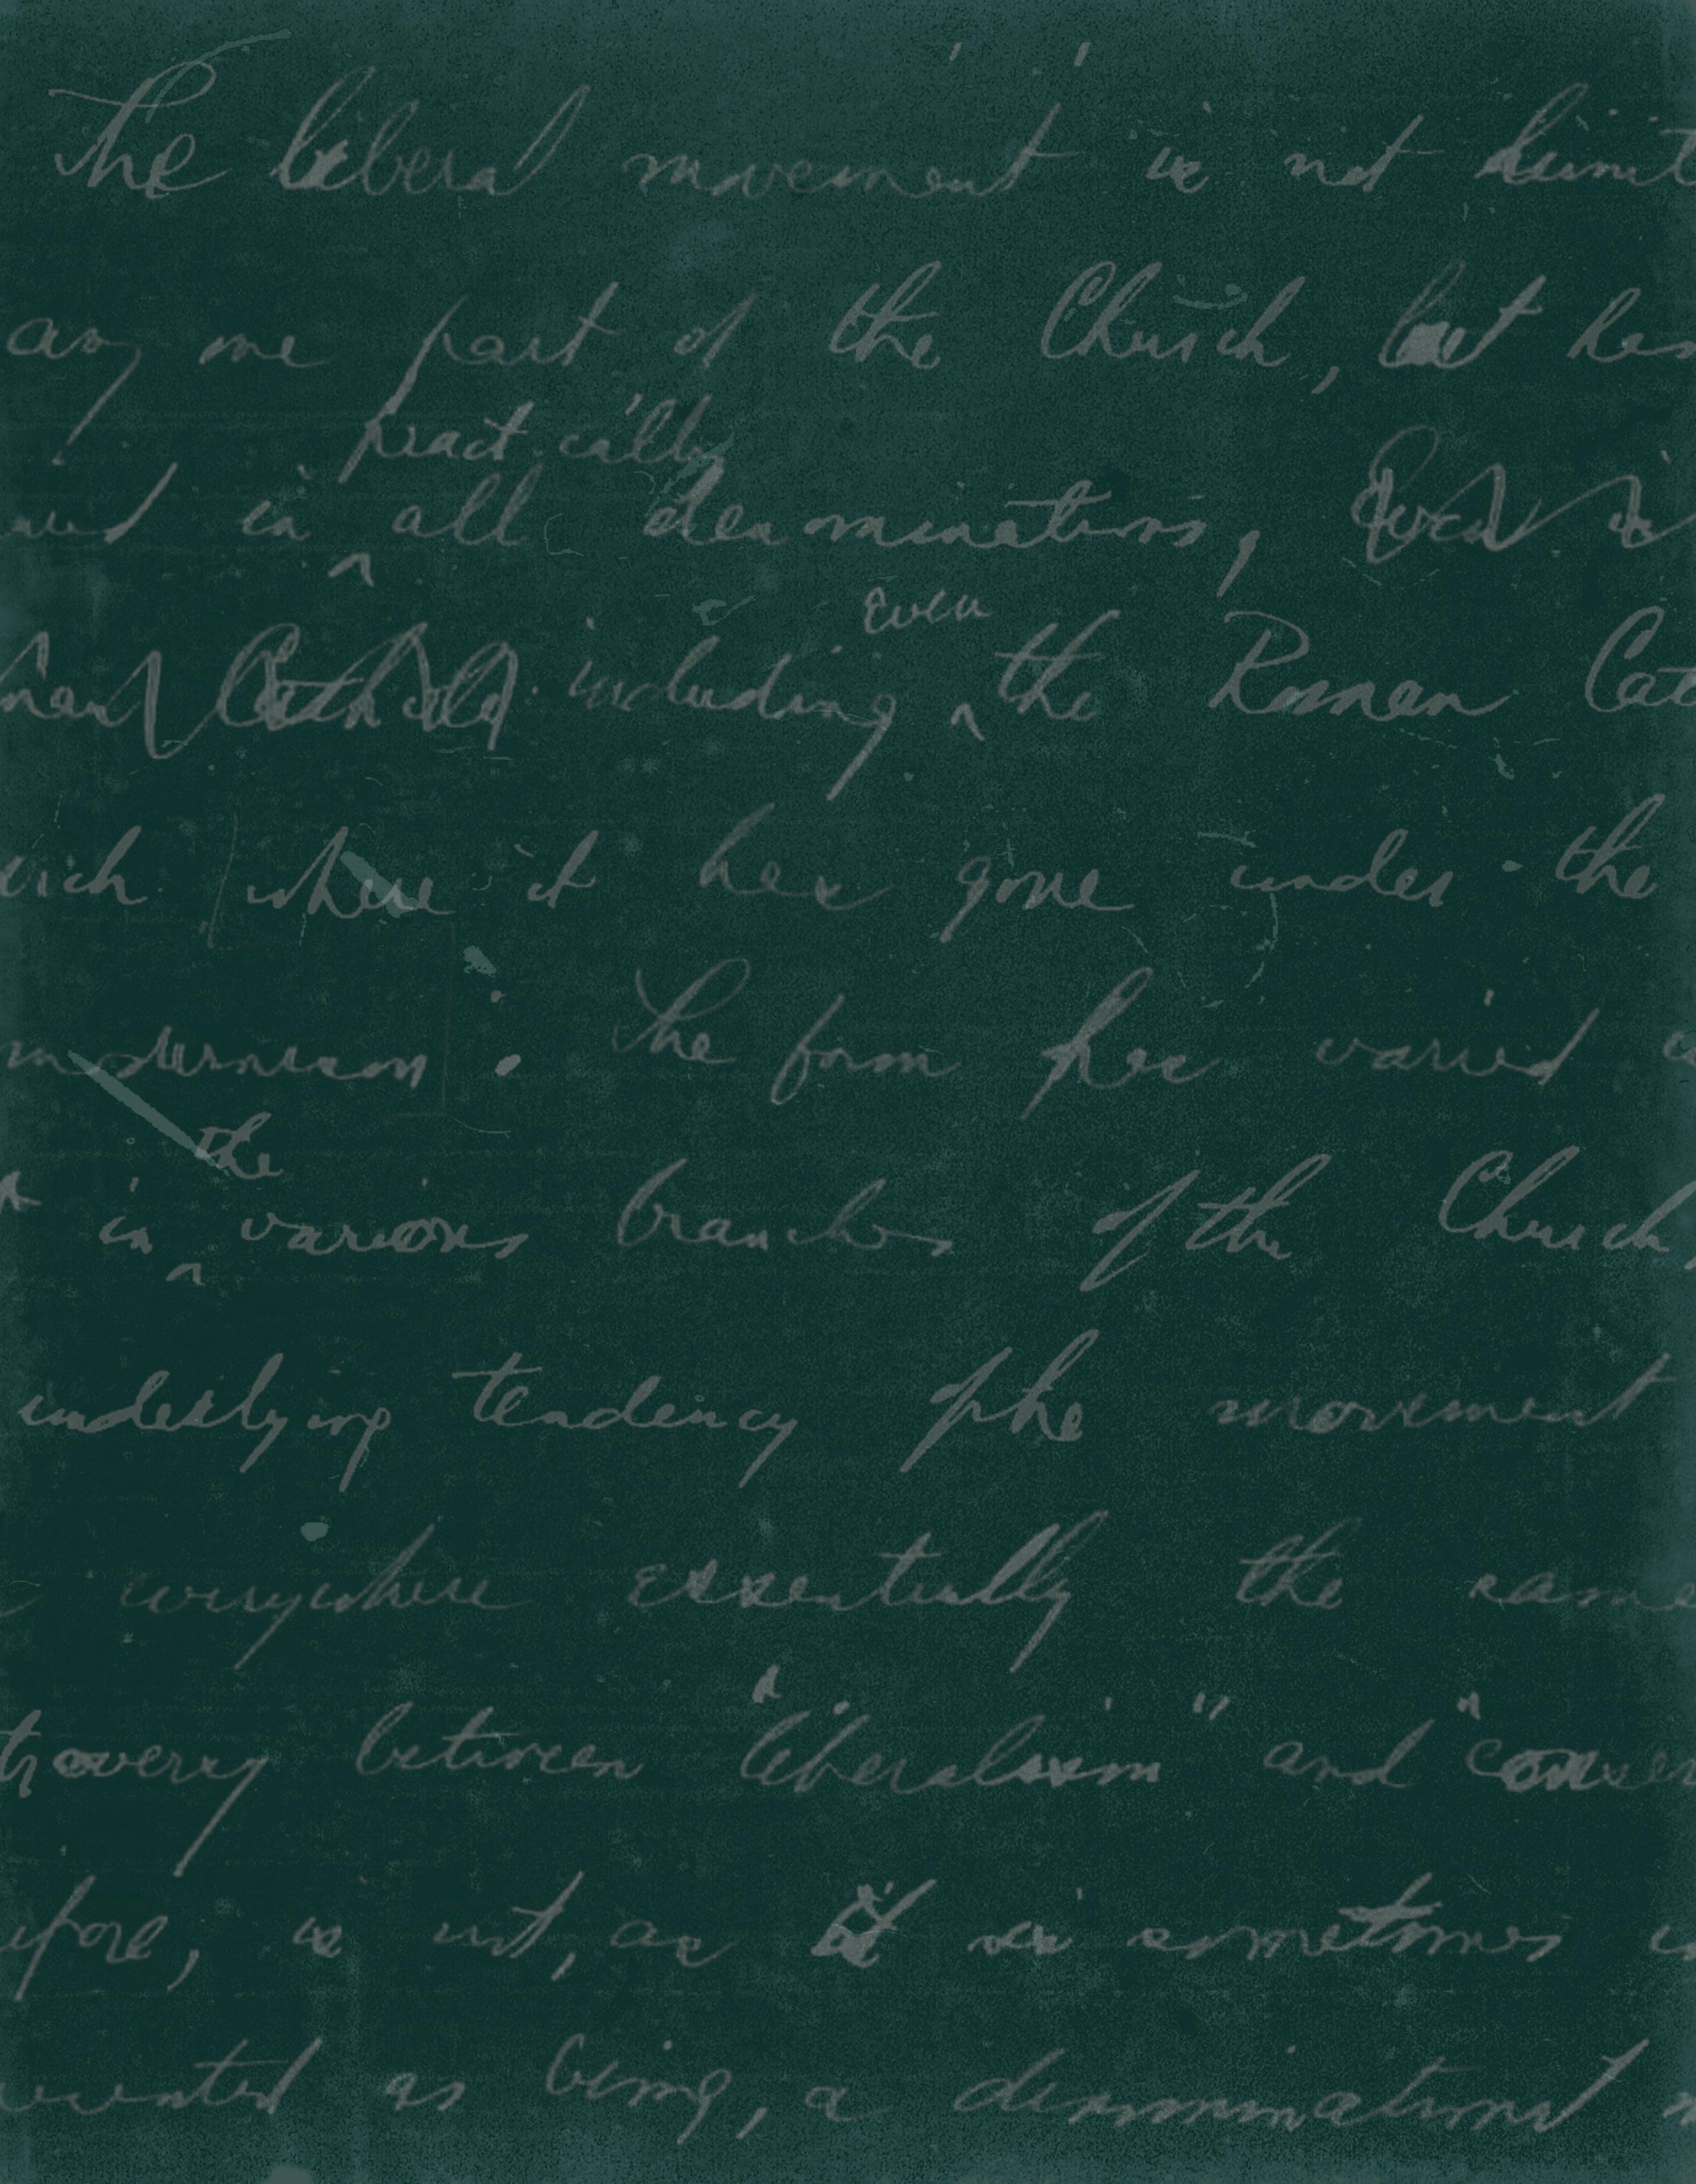 The liberal movement is not limit
any one part of the Church, but has
practically
in all denominations, Even in
even
Catholic including the Roman Cat
where it has gone under the
modernism. The form has varied
the
in various branches of the Church,
underlying tendency of the movement
everywhere essentially the same
troversy between "liberalism" and "conser
efore, is not, as it is sometimes
as being, a denominational